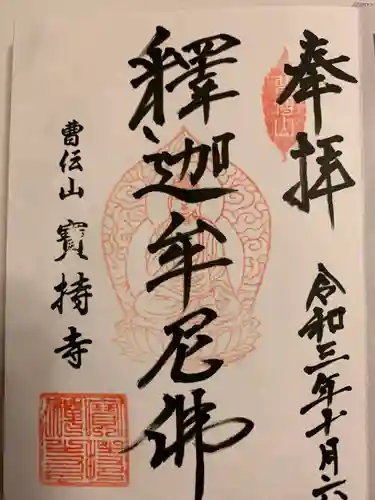 奉拝
令和三年十月六
釋迦牟尼佛
曹伝山 寳持寺